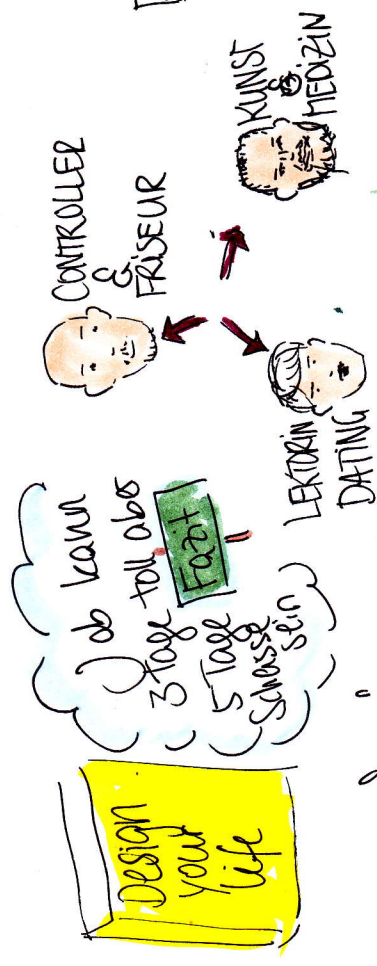 Design
your
life
Job kann
3 Tage toll aber
5 Tage
Scheisse
sein
Fazit
CONTROLLER
&
FRISEUR
LEKTORIN
DATING
KUNST
&
MEDIZIN